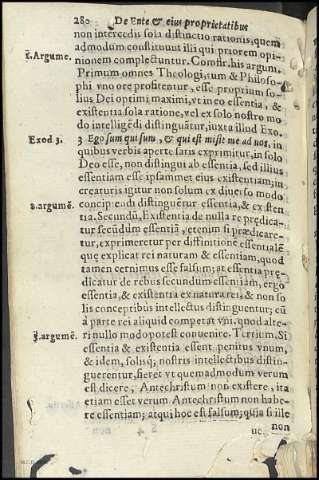 280 De Ente & eius proprietatibus
non intercedis sola distinctio rationis, quem
admodum constituunt illi qui priorem opi-
nionem complectuntur. Comfir, his argum.
1. Argume. Primum omnes Theologi, tum & Philoso-
phi vno ore profitentur, esse proprium so-
lius Dei optimi maximi, vt in eo essentia, &
existentia sola ratione, vel ex solo nostro mo
do intelligẽdi distinguãtur, iuxta illud Exo.
Exod 3. 3 Ego sum qui sum, & qui est misit me ad vos, in
quibus verbis apertè satis exprimitur, in solo
Deo esse, non distingui ab essentia, sed illius
essentiam esse ipsammet eius existentiam, in
creaturis igitur non solum ex diuerso modo
2. argumẽ. concipiendi distinguẽtur essentia, & existen
tia. Secundũ, Existentia de nulla re prędica-
tur secũdum essentiã, etenim si prædicare-
tur, exprimeretur per diffinitionẽ essentialẽ
quę explicat rei naturam & essentiam, quod
tamen cernimus esse falsum; at essentia prę-
dicatur de rebus secundum essentiam, ergo
essentia, & existentia ex natura rei, & non so
lis conceptibus intellectus distinguentur; cũ
à parte rei aliquid competat vni, quod alte-
3. argumẽ. ri nullo modo potest conuenire. Tertium, Si
essentia & existentia essent penitus vnum,
& idem, solisq; nostris intellectibus distin-
guerentur, fieret vt quemadmodum verum
est dicere, Antechristum non existere, ita
etiam esset verum Antechristum non habe-
re essentiam; atqui hoc est falsum; quia si ille
non